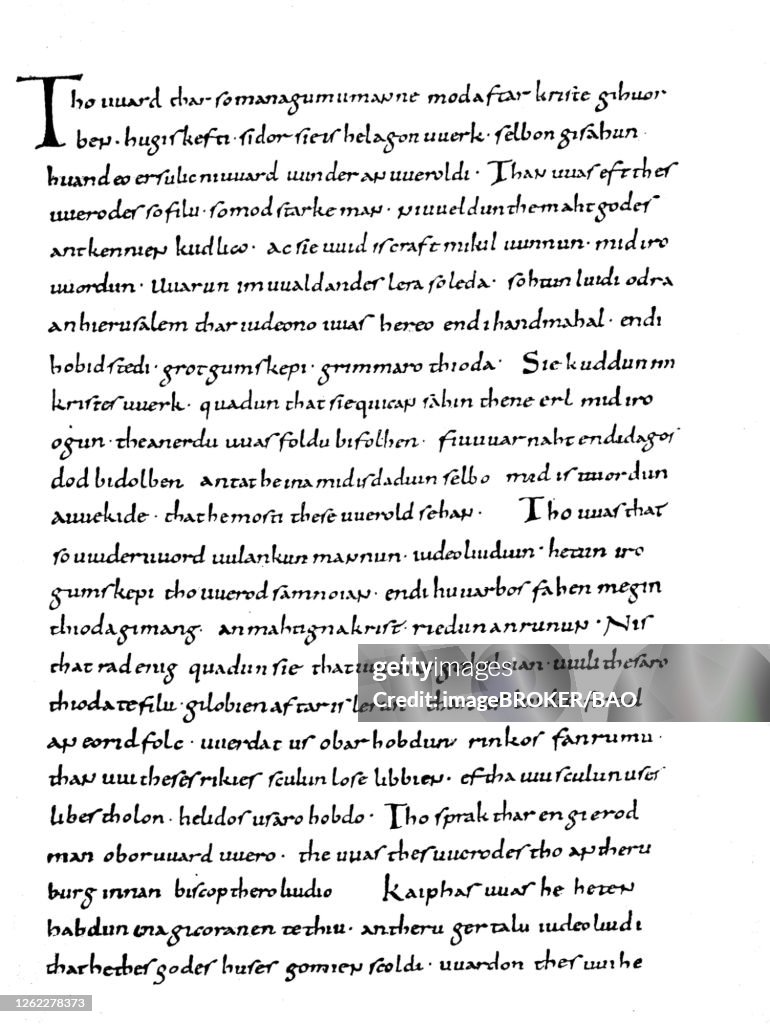 Tho uuard thar so managumu manne mod aftar kriste gihuor
ben · hugiskefti · sidor sie is helagon uuerk · selbon gisahun
huand eo er sulic ni uuard uunder an uueroldi · Than uuas eft thes
uuerodes so filu · so mod starke man · ni uueldun the maht godes
antkennien kudlico · ac sie uuid is craft mikil uunnun · mid iro
uuordun · Uuarun im uualdandes lera so leda · sohtun liudi odra
an hierusalem thar iudeono uuas hereo endi handmahal · endi
hobid stedi · grot gumskepi · grimmaro thioda · Sie kuddun im
kristes uuerk · quadun that sie quican sahin thene erl mid iro
ogun · the an erdu uuas foldu bifolhen · fiuuuar naht endi dagos
dod bidolben antat he ina mid is daduin selbo mid is uuordun
auuekide · that he mosti these uuerold sehan · Tho uuas that
so uuideruuord uulankun mannun · iudeo liuduin · hetun iro
gumskepi tho uuerod samnoian · endi huuarbos fahen megin
thioda gimang · an mahtigna krist · riedun an runun · Nis
that rad enig quadun sie that uui that githoloian · uuili thesaro
thioda te filu · gilobien aftar is lerun
an eorid folc · uuerdat us obar hobdun rinkos fan rumu ·
than uui theses rikies sculun lose libbien · eftha uui sculun uses
libes tholon · helidos usaro hobdo · Tho sprak thar en gierod
man obor uuard uuero · the uuas thes uuerodes tho an theru
burg innan biscop thero liudio Kaiphas uuas he heten
habdun ina gicoranen te thiu · an theru ger talu iudeo liudi
that he thes godes huses gomien scoldi · uuardon thes uuihe
gettyimages
Credit: imageBROKER/BAO
1262278373